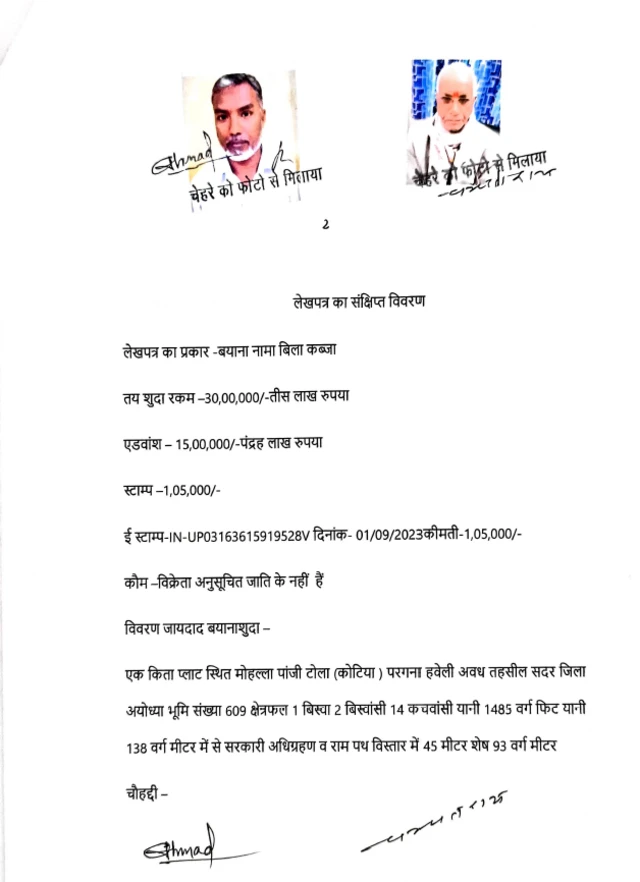 Ahmad
चेहरे को फोटो से मिलाया
चेहरे को फोटो से मिलाया
2
लेखपत्र का संक्षिप्त विवरण
लेखपत्र का प्रकार -बयाना नामा बिला कब्जा
तय शुदा रकम –30,00,000/-तीस लाख रुपया
एडवांश – 15,00,000/-पंद्रह लाख रुपया
स्टाम्प –1,05,000/-
ई स्टाम्प-IN-UP03163615919528V दिनांक- 01/09/2023कीमती-1,05,000/-
कौम –विक्रेता अनुसूचित जाति के नहीं हैं
विवरण जायदाद बयानाशुदा –
एक किता प्लाट स्थित मोहल्ला पांजी टोला (कोटिया ) परगना हवेली अवध तहसील सदर जिला
अयोध्या भूमि संख्या 609 क्षेत्रफल 1 बिस्वा 2 बिस्वांसी 14 कचवांसी यानी 1485 वर्ग फिट यानी
138 वर्ग मीटर में से सरकारी अधिग्रहण व राम पथ विस्तार में 45 मीटर शेष 93 वर्ग मीटर
चौहद्दी –
Ahmad